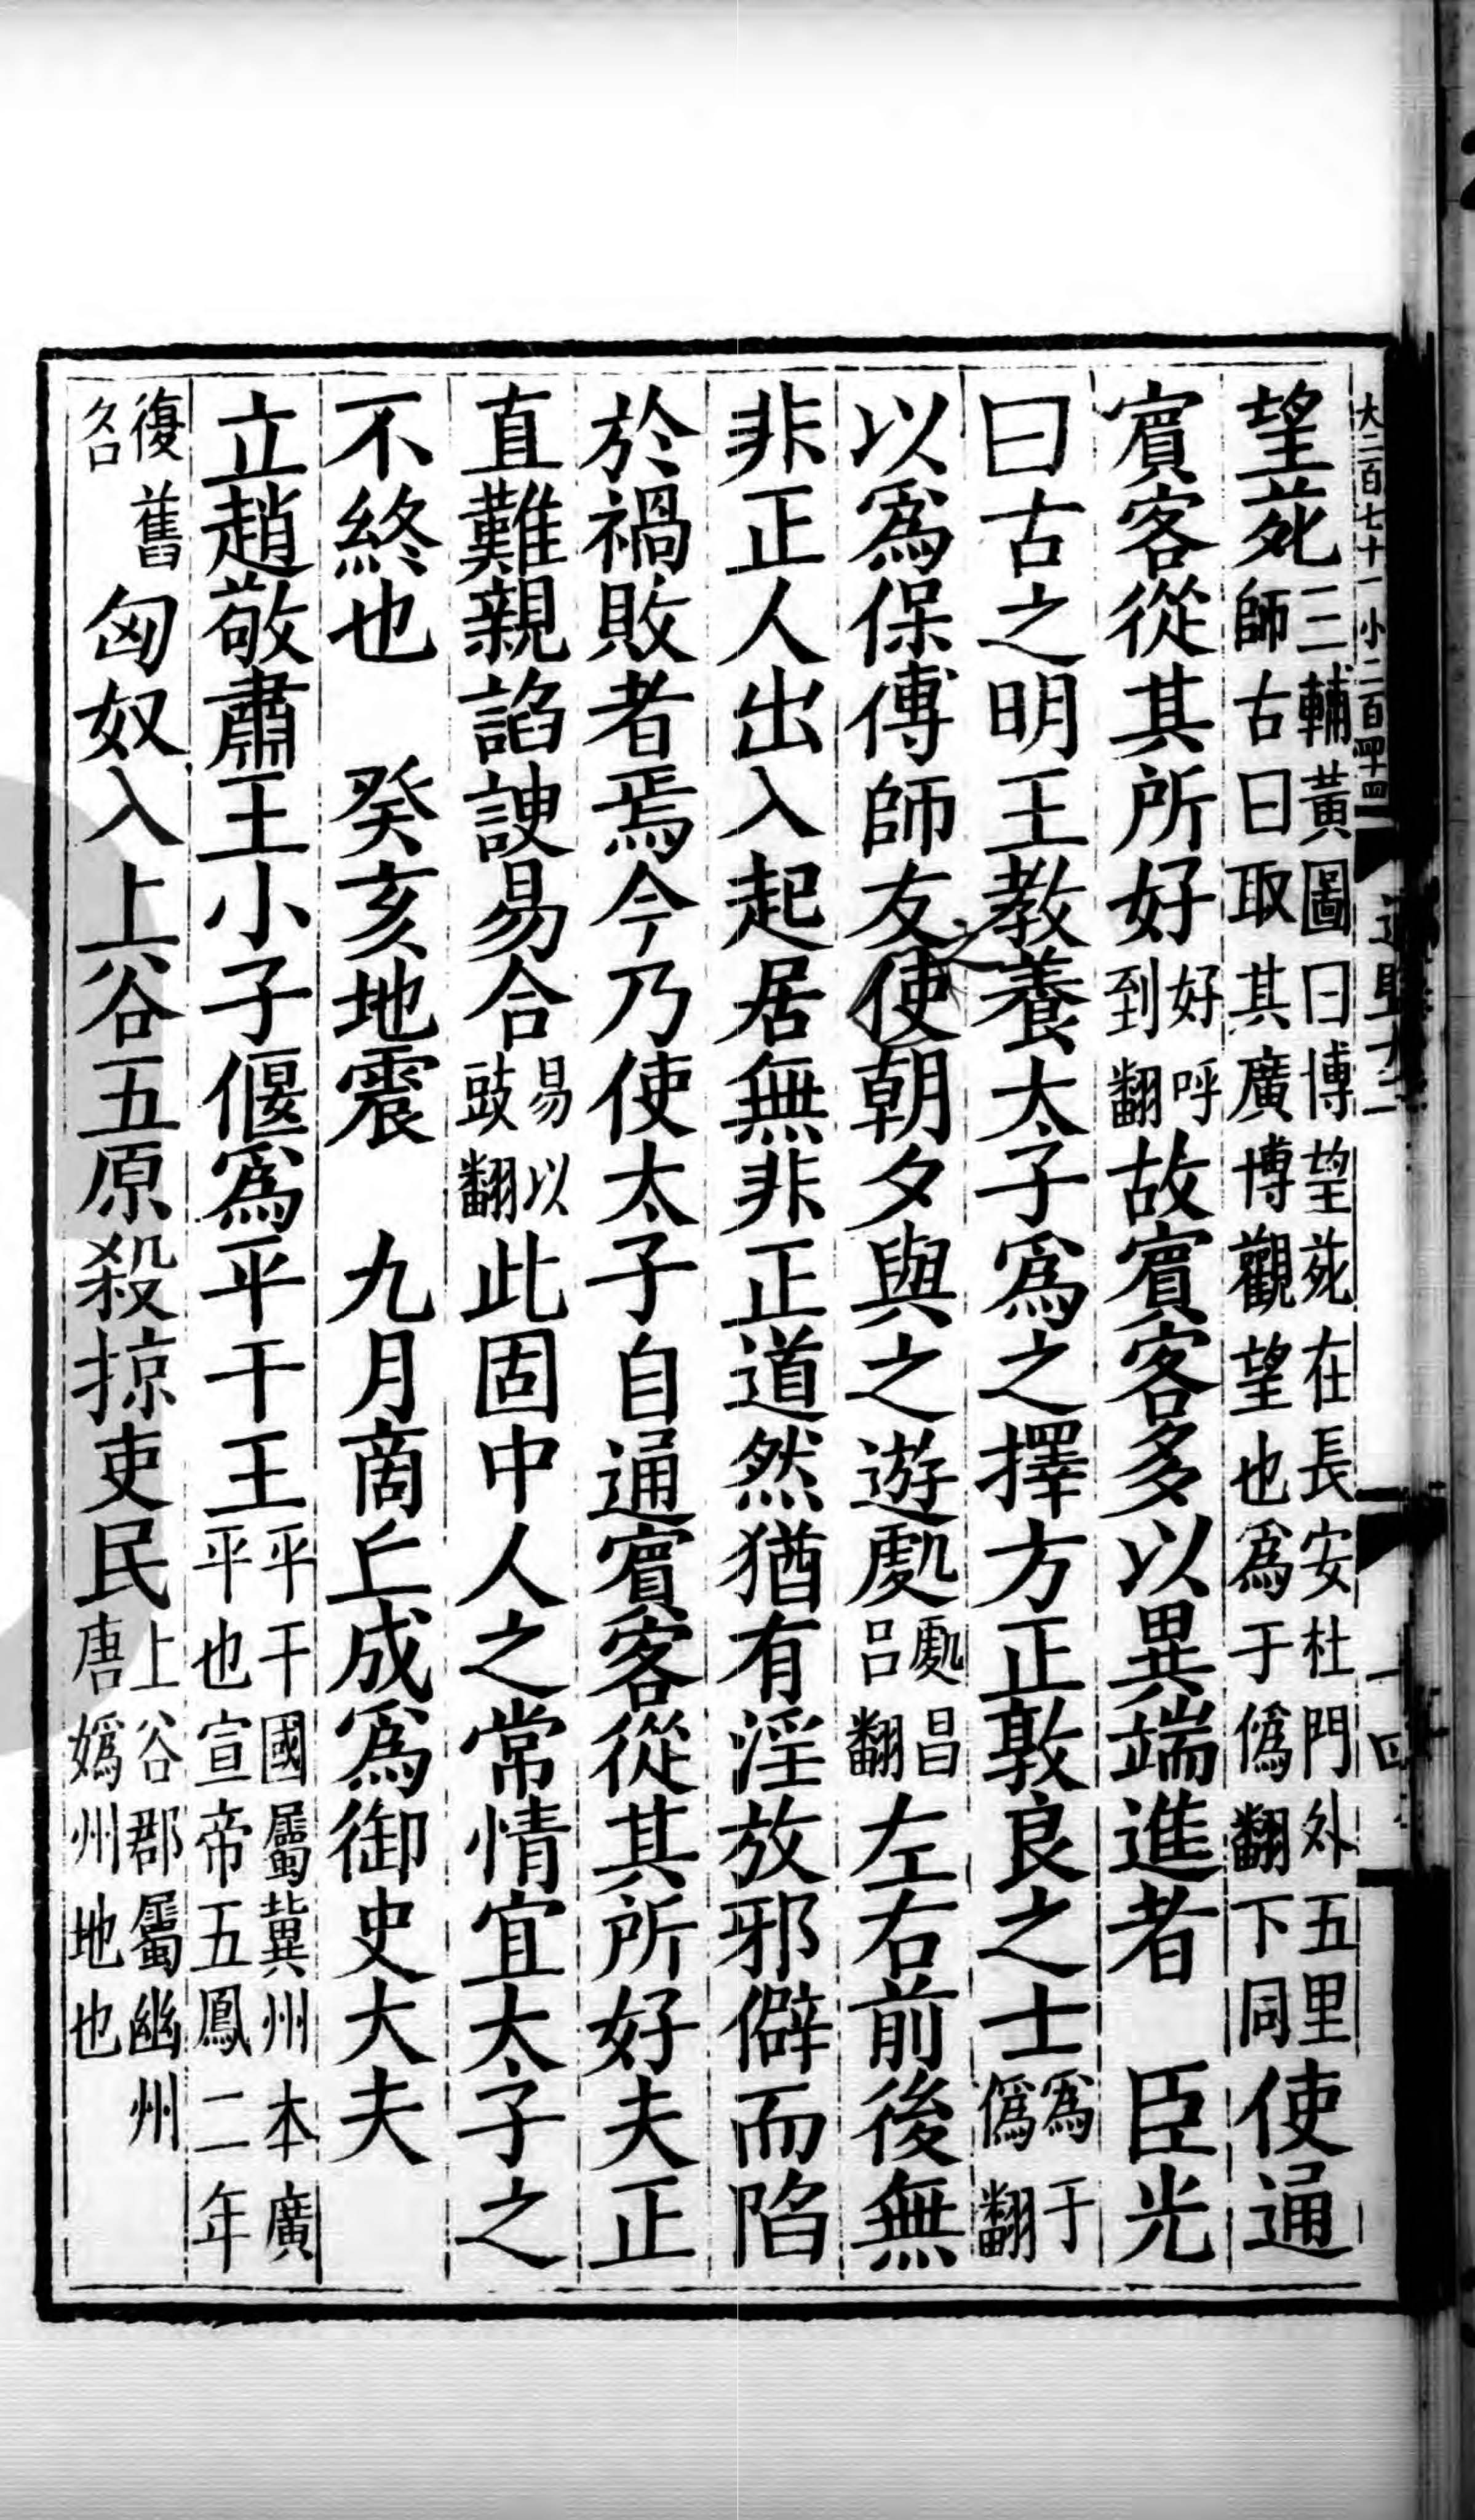 大二百七十一 小二百四十四
望苑三輔黃圖曰博望苑在長安杜門外五里師古曰取其廣博觀望也爲于僞翻下同使通
賓客從其所好好呼到翻故賓客多以異端進者 臣光
曰古之明王教養太子爲之擇方正敦良之士爲于僞翻
以爲保傅師友使之朝夕與之遊處處昌呂翻左右前後無
非正人出入起居無非正道然猶有淫放邪僻而陷
於禍敗者焉今乃使太子自通賓客從其所好夫正
直難親諂諛易合易以豉翻此固中人之常情宜太子之
不終也 癸亥地震 九月商丘成爲御史大夫
立趙敬肅王小子偃爲平干王平干國屬冀州本廣平也宣帝五鳳二年
復舊名匈奴入上谷五原殺掠吏民上谷郡屬幽州唐嬀州地也